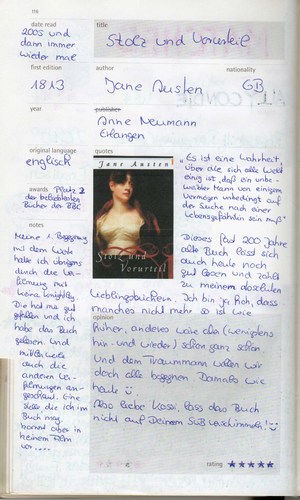 118
date read
2005 und
dann immer
wieder mal
title
Stolz und Vorurteil
first edition
1813
author
Jane Austen
nationality
GB
year
publisher
Anne Neumann
Erlangen
original language
englisch
awards Platz 2
der beliebtesten
Bücher der BBC
quotes
Jane Austen
Stolz und
Vorurteil
"Es ist eine Wahrheit,
über die sich alle Welt
einig ist, daß ein unbe-
weibter Mann von einigem
Vermögen unbedingt auf
der Suche nach einer
Lebensgefährtin sein muß"
notes
Meine 1. Begegnung
mit dem Buch
habe ich übrigens
durch die Ver-
filmung mit
Keira Knightley.
Die hat mir gut
gefallen und ich
habe das Buch
gelesen und
mittlerweile
auch die
anderen Ver-
filmungen an-
geschaut. Eine
Stelle die ich im
Buch mag
kommt aber in
keinem Film
vor.....
Dieses fast 200 Jahre
alte Buch lässt sich
auch heute noch
gut lesen und zählt
zu meinem absoluten
Lieblingsbüchern. Ich bin ja froh, dass
manches nicht mehr so ist wie
opinion
früher, anderes wäre aber (wenigstens
hin und wieder) schon ganz schön
und dem Traummann wollen wir
doch alle begegnen Damals wie
heute
Also liebe Kossi, lass das Buch
nicht auf Deinem SUB verschimmeln!
rating ★★★★★